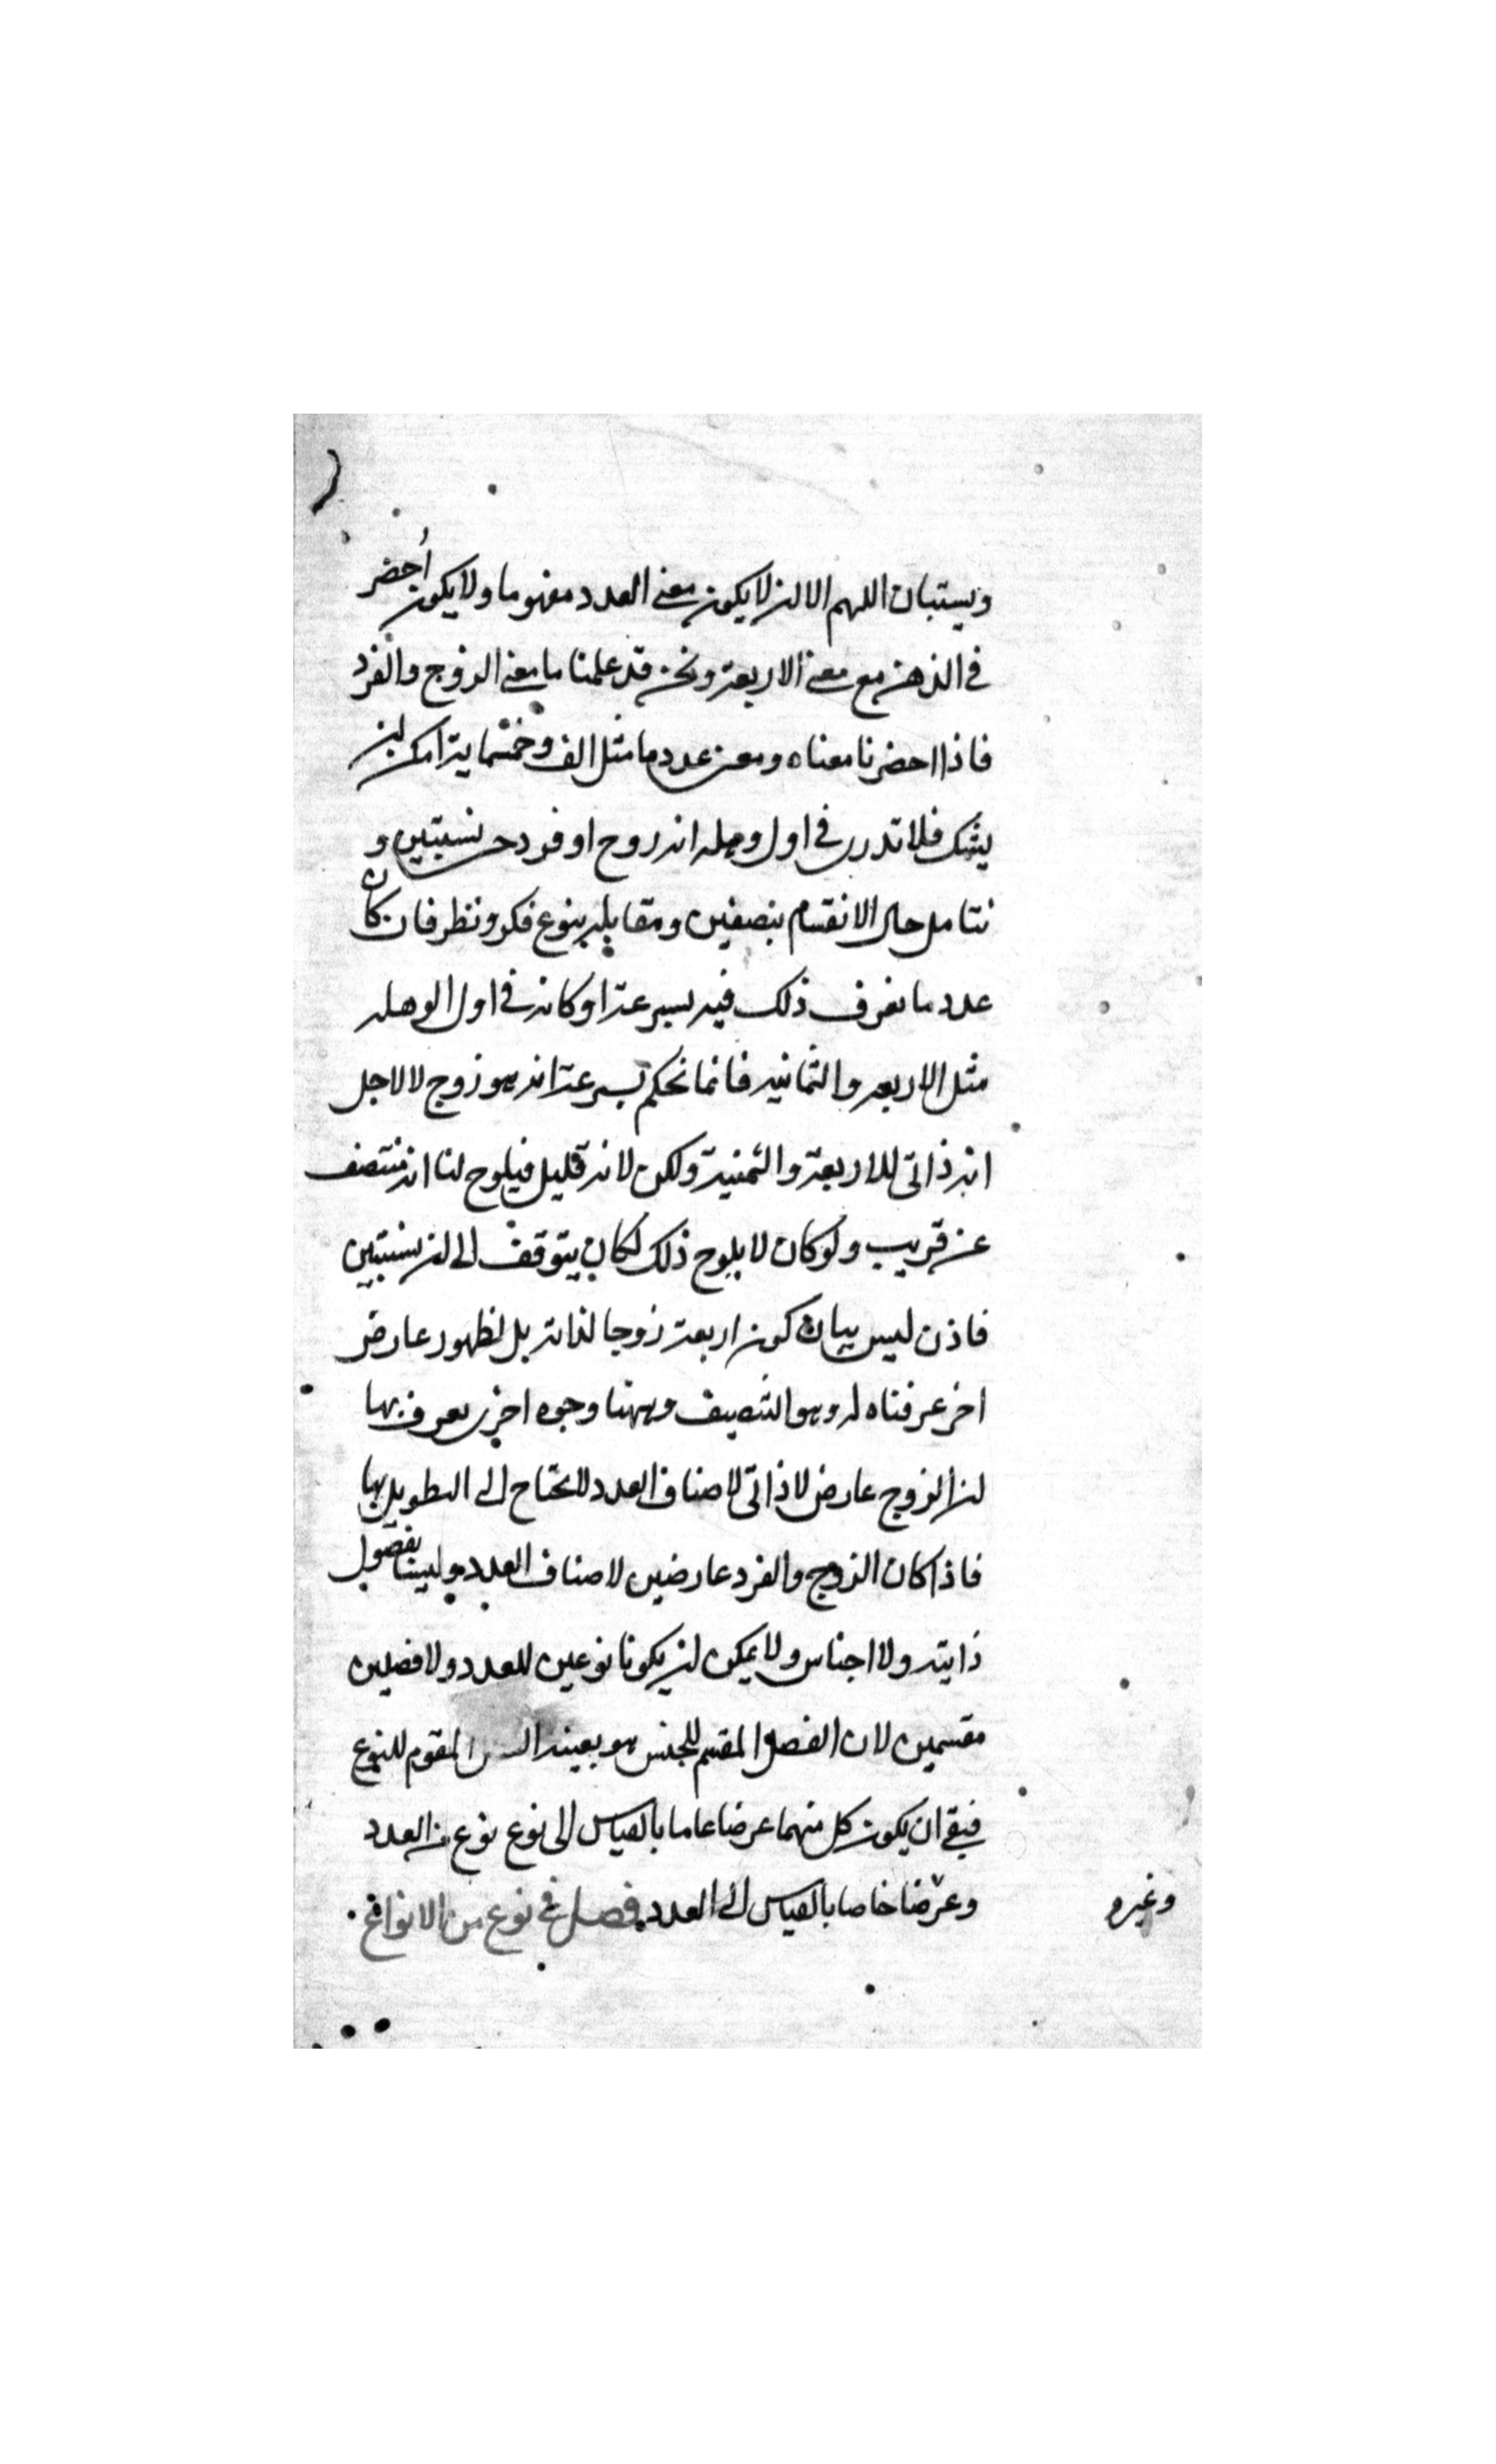 ويستبان اللهم الا ان لا يكون معنى العدد مفهوما ولا يكون أحضر
في الذهن مع معنى الاربعة ونحن قد علمنا ما معنى الزوج والفرد
فاذا احضرنا معناه ومعنى عدد ما مثل الف وخمسماية امكن ان
يشك فلا تدرى في اول وهله انه زوج او فرد حتى نستبين و
نتامل حال الانقسام بنصفين ومقابله بنوع فكر ونظر فان كان
عدد ما نعرف ذلك فيه بسرعة او كانه في اول الوهله
مثل الاربعه والثمانيه فانما نحكم بسرعة انه هو زوج لا لاجل
انه ذاتى للاربعة والثمنية ولكن لانه قليل فيلوح لنا انه منتصف
عن قريب ولو كان لا يلوح ذلك لكان يتوقف الى ان نستبين
فاذن ليس بيان كون اربعة زوجا لذاته بل لظهور عارض
اخر عرفناه له وهو التنصيف وههنا وجوه اخرى يعرف بها
ان الزوج عارض لا ذاتى لاصناف العدد لا نحتاج الى التطويل بها
فاذا كان الزوج والفرد عارضين لاصناف العدد وليسا بفصول
ذايته ولا اجناس ولا يمكن ان يكونا نوعين للعدد ولا فصلين
مقسمين لان الفصل المقسم للجنس هو بعينه المقوم للنوع
فبقى ان يكون كل منهما عرضا عاما بالقياس الى نوع نوع من العدد
وغيره وعرضا خاصا بالقياس الى العدد فصل في نوع من الانواع